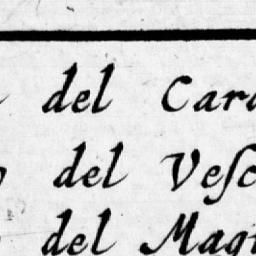 del Card
del Veſc
del Mag